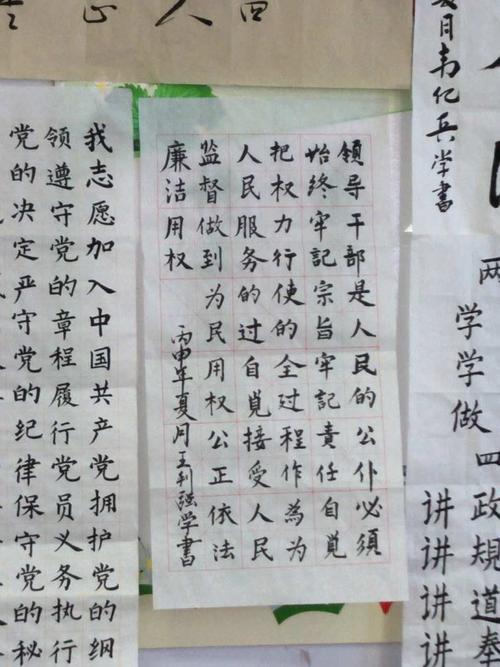 夏月韦亿兵学书
两
学学做
四
政规道奉
讲讲讲讲
领导干部是人民的公仆必须
始终牢記宗旨牢記責任自覓
把权力行使的全过程作為为
人民服务的过自覓接受人民
监督做到为民用权公正依法
廉洁用权
丙申年夏月王刊强学書
我志愿加入中国共产党拥护党的纲
领遵守党的章程履行党员义务执行
党的决定严守党的纪律保守党的秘